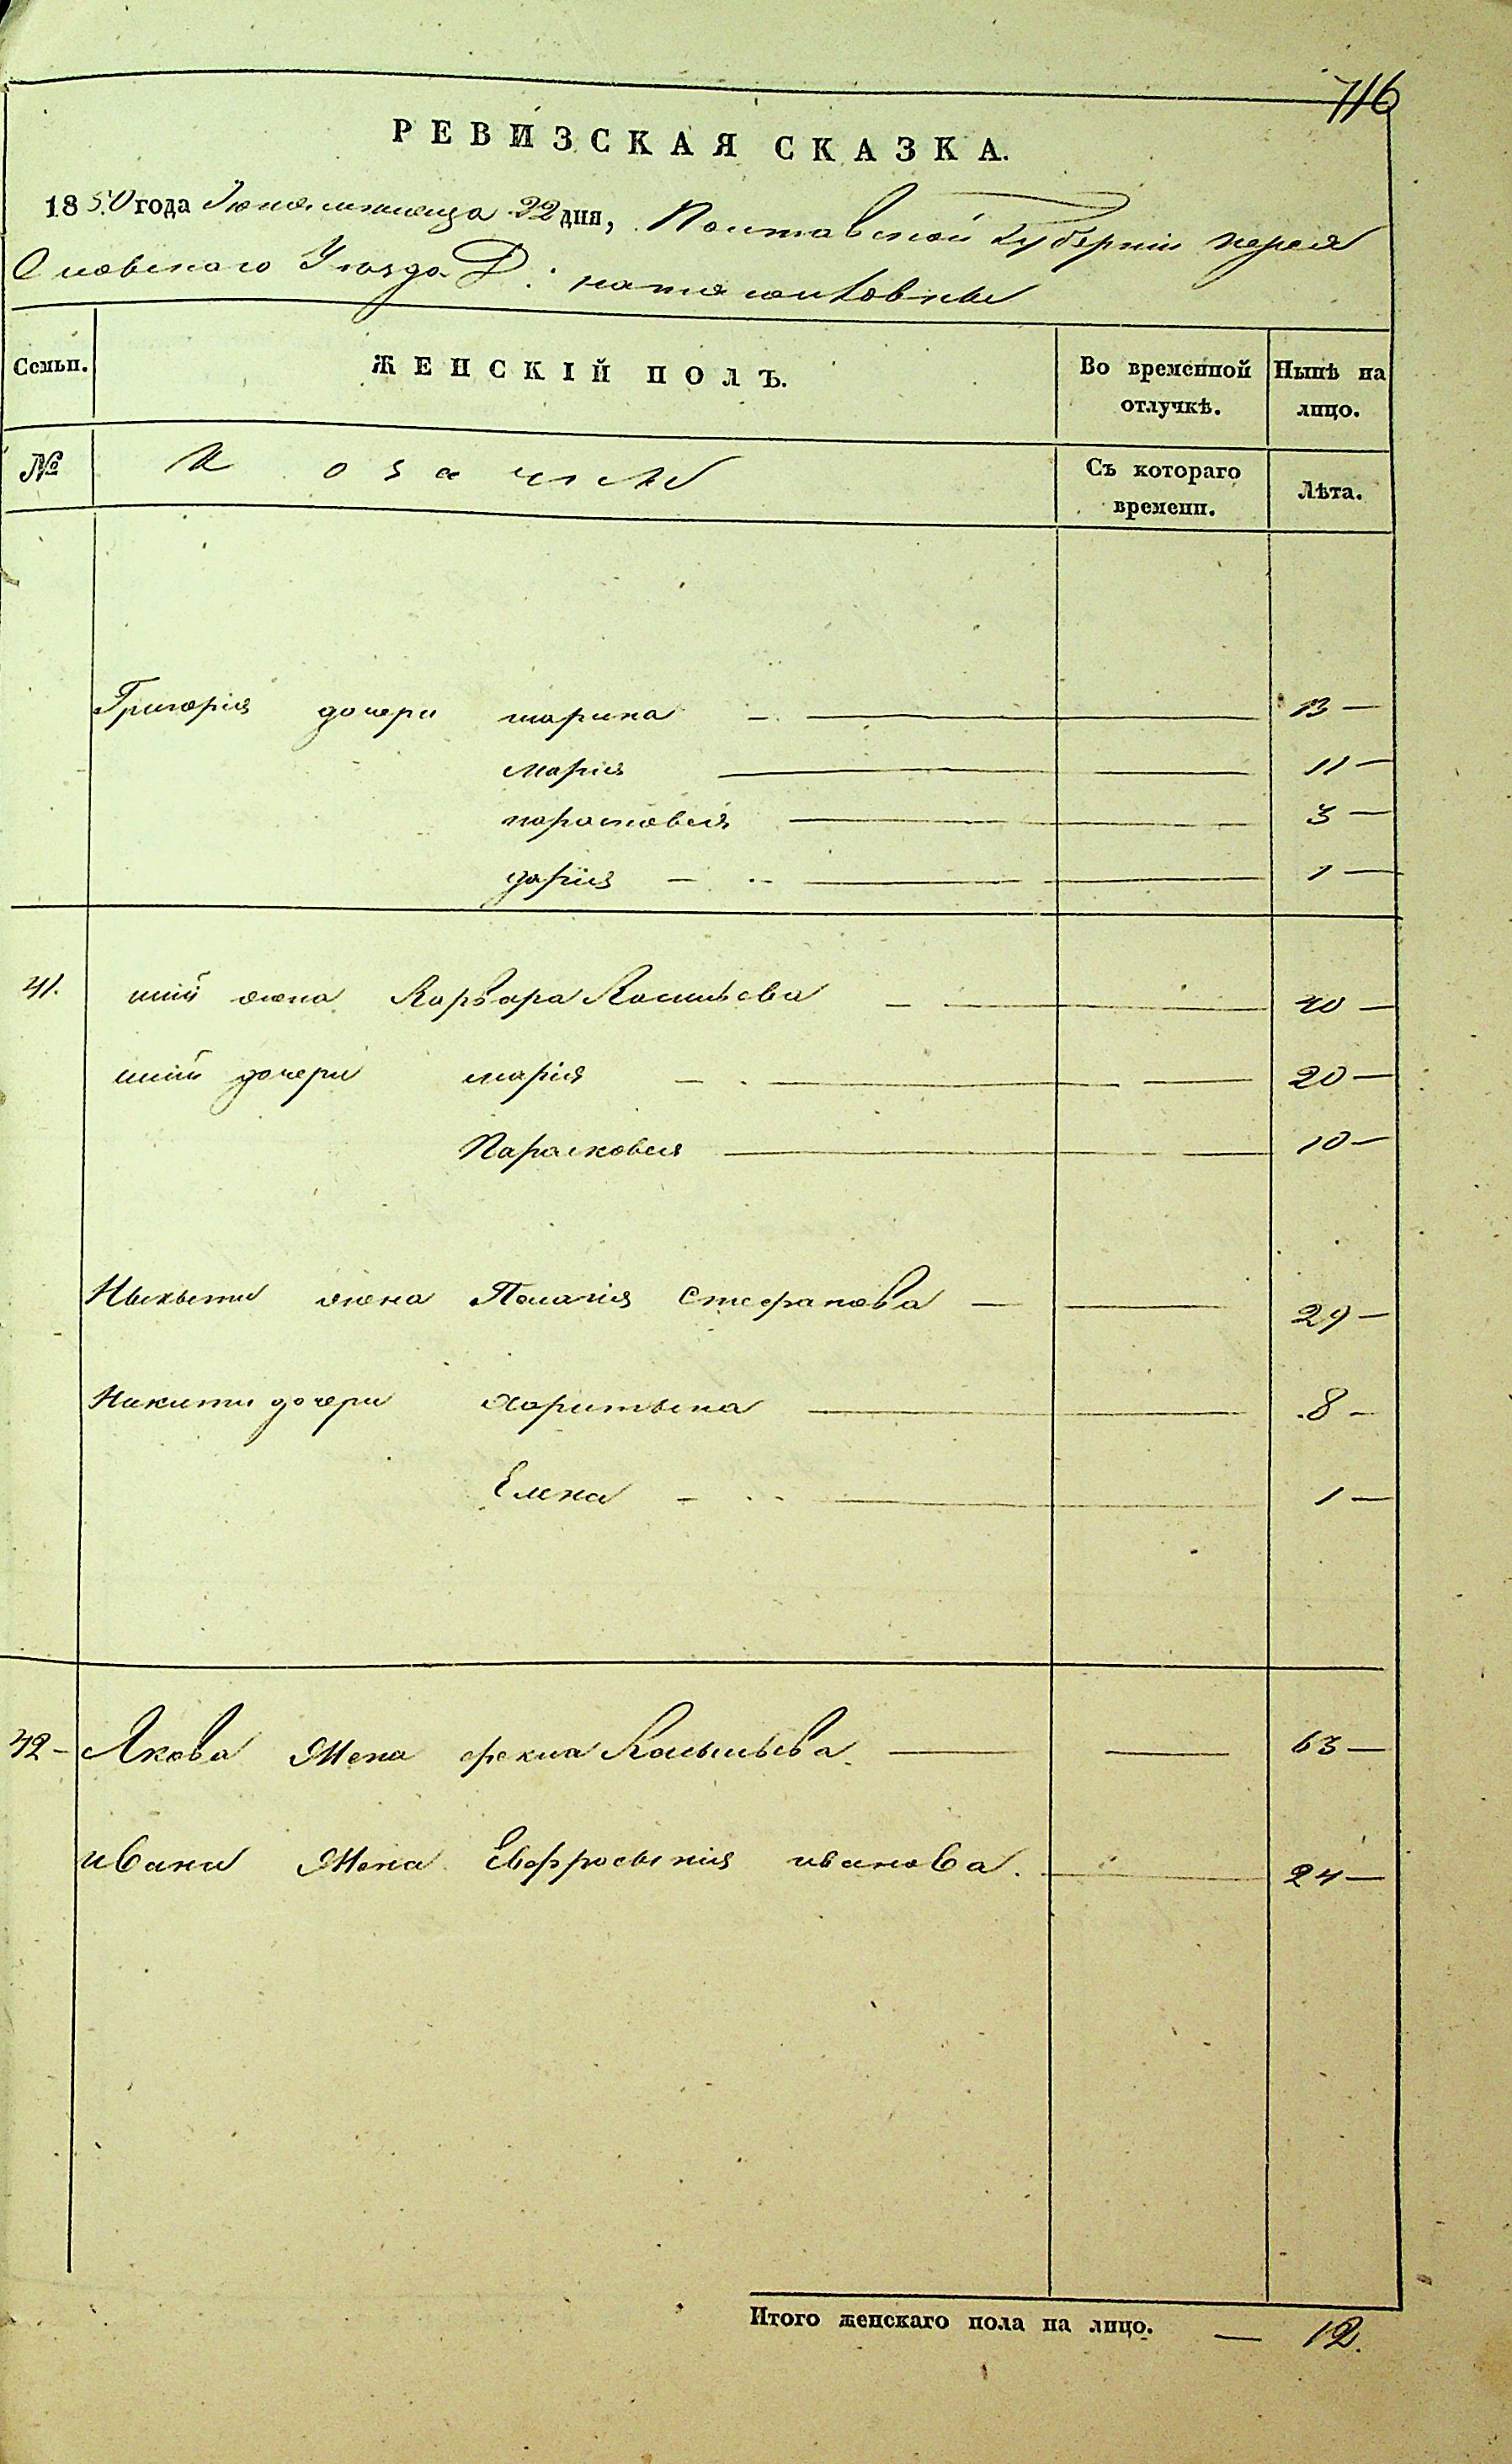 716
РЕВИЗСКАЯ СКАЗКА.
1850 года Іюня мѣсяца 22 дня, Полтавской Губерніи Перея
словского Уѣзда Д:
Семьи. ЖЕНСКІЙ ПОЛЪ. Во временной отлучкѣ. Нынѣ на лицо.
№ Козачій Съ котораго времени. Лѣта.
Григорія дочери марина — 13 —
Марія — 11 —
парасковія — 3 —
дарія — 1 —
41. жена Варвара Василіева — 40 —
дочери марія — 20 —
Парасковея — 10 —
Ныкыты жена Пелагія Стефанова — 29 —
Никити дочери Харитына — 8 —
Елена — 1 —
42 — Якова Жена фекла Васыльева — 63 —
ивана Жена Евфросынія иванова. — 24 —
Итого женскаго пола на лицо. — 12.